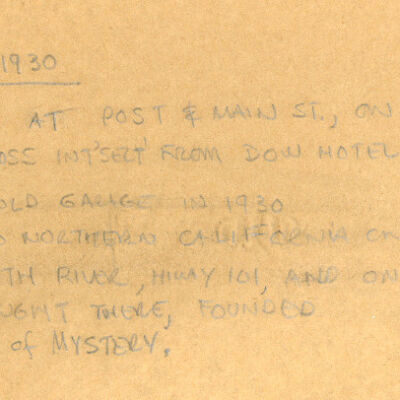 1930
AT POST & MAIN ST., ON
OSS INT'SECT' FROM DOW HOTEL
OLD GARAGE IN 1930
NORTHERN CALIFORNIA ON
TH RIVER, HIWAY 101, AND ON
UGHT THERE, FOUNDED
of MYSTERY.